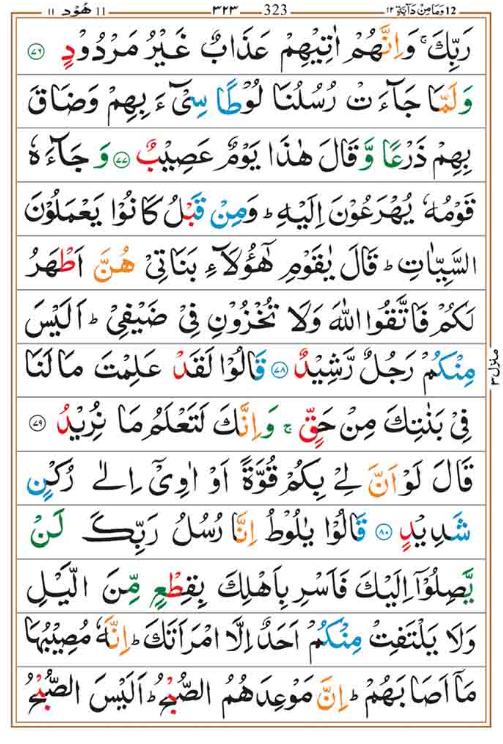 ١١ هُوْد ١١ ٣٢٣ 323 ١٢ وَمَا مِنْ دَآبَّةٍ 12
رَبِّكَ ۚ وَاِنَّهُمْ اٰتِيْهِمْ عَذَابٌ غَيْرُ مَرْدُوْدٍ ﴿٧٦﴾
وَلَمَّا جَآءَتْ رُسُلُنَا لُوْطًا سِيْٓءَ بِهِمْ وَضَاقَ
بِهِمْ ذَرْعًا وَّقَالَ هٰذَا يَوْمٌ عَصِيْبٌ ﴿٧٧﴾ وَجَآءَهٗ
قَوْمُهٗ يُهْرَعُوْنَ اِلَيْهِ ؕ وَمِنْ قَبْلُ كَانُوْا يَعْمَلُوْنَ
السَّيِّاٰتِ ؕ قَالَ يٰقَوْمِ هٰٓؤُلَآءِ بَنَاتِيْ هُنَّ اَطْهَرُ
لَكُمْ فَاتَّقُوا اللّٰهَ وَلَا تُخْزُوْنِ فِيْ ضَيْفِيْ ؕ اَلَيْسَ
مِنْكُمْ رَجُلٌ رَّشِيْدٌ ﴿٧٨﴾ قَالُوْا لَقَدْ عَلِمْتَ مَا لَنَا
فِيْ بَنٰتِكَ مِنْ حَقٍّ ۚ وَاِنَّكَ لَتَعْلَمُ مَا نُرِيْدُ ﴿٧٩﴾
قَالَ لَوْ اَنَّ لِيْ بِكُمْ قُوَّةً اَوْ اٰوِيْٓ اِلٰى رُكْنٍ
شَدِيْدٍ ﴿٨٠﴾ قَالُوْا يٰلُوْطُ اِنَّا رُسُلُ رَبِّكَ لَنْ
يَّصِلُوْٓا اِلَيْكَ فَاَسْرِ بِاَهْلِكَ بِقِطْعٍ مِّنَ الَّيْلِ
وَلَا يَلْتَفِتْ مِنْكُمْ اَحَدٌ اِلَّا امْرَاَتَكَ ؕ اِنَّهٗ مُصِيْبُهَا
مَآ اَصَابَهُمْ ؕ اِنَّ مَوْعِدَهُمُ الصُّبْحُ ؕ اَلَيْسَ الصُّبْحُ
منزل ٣